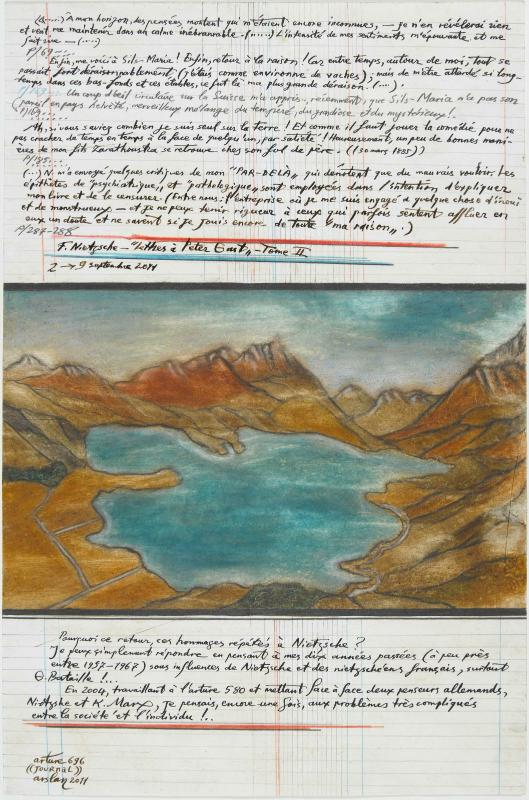 (......) À mon horizon, des pensées montent qui m'étaient encore inconnues, — je n'en révélerai rien
et veut me maintenir dans un calme inébranlable. (......) L'intensité de mes sentiments m'épouvante et me
fait rire — (.....)
P/69
Enfin, me voici à Sils-Maria ! Enfin, retour à la raison ! Car entre temps, autour de moi, tout se
passait fort déraisonnablement (j'étais comme environné de vaches) ; mais de m'être attardé si long-
temps dans ces bas-fonds et ces étables, ce fut là ma plus grande déraison. (....)
Un coup d'œil circulaire sur la Suisse m'a appris, récemment, que Sils-Maria n'a pas son
pareil en pays helvète, merveilleux mélange du tempéré, du grandiose, et du mystérieux !.
P/169
Ah, si vous saviez combien je suis seul sur la terre ! Et comme il faut jouer la comédie pour ne
pas cracher de temps en temps à la face de quelqu'un, par satiété ! Heureusement, un peu des bonnes mani-
ères de mon fils Zarathoustra se retrouve chez son fol de père. ((30 mars 1885))
P/185
(...) N. m'a envoyé quelques critiques de mon "PAR-DELÀ", qui dénotent que du mauvais vouloir. Les
épithètes de "psychiatrique", et "pathologique", sont employées dans l'intention d'expliquer
mon livre et de le censurer. (Entre nous : l'entreprise où je me suis engagé a quelque chose d'inouï
et de monstrueux — et je ne peux tenir rigueur à ceux qui parfois sentent affluer en
eux un doute et ne savent si je jouis encore de toute "ma raison".)
P/287-288
F. Nietzsche – "Lettres à Peter Gast" – Tome II
2 → 9 septembre 2011
Pourquoi ce retour, ces hommages répétés à Nietzsche ?
Je peux simplement répondre en pensant à mes dix années passées (à peu près
entre 1957-1967) sous influences de Nietzsche et des nietzschéens français, surtout
G. Bataille !...
En 2004, travaillant à l'arture 580 et mettant face à face deux penseurs allemands,
Nietzsche et K. Marx, je pensais, encore une fois, aux problèmes très compliqués
entre la société et l'individu !..
arture 696
((JOURNAL))
arslan 2011